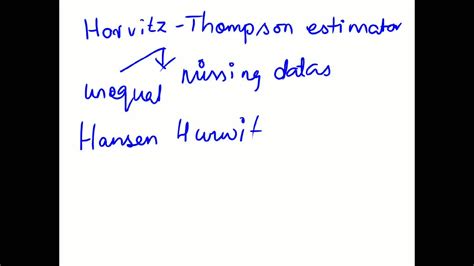 Horvitz-Thompson estimator
unequal missing datas
Hansen Hurwit